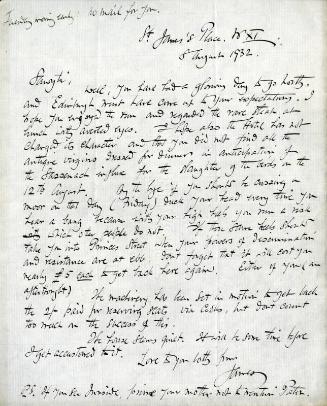 Tuesday morning early: no mail for you.
St. James's Place. W XI.
8 August 1932.
Well, you have had a glowing day to go north,
and Edinburgh must have come up to your expectations. I
hope you enjoyed the run and regarded the rare steak at
lunch with averted eyes. I hope also the Hotel has not
changed its character and that you did not find all the
antique virgins dressed for dinner in anticipation of
the influx for the slaughter of the birds on the
12th August. By the bye if you should be crossing a
moor on that day (Friday) duck your head every time you
hear a bang because with your high heels you run a risk
which other people do not. The two should
take you into Princes Street when your powers of discrimination
and resistance are at ebb. Don't forget that it will cost you
nearly £5 each to get back here again. Either if you (an
afterthought)
The machinery has been set in motion to get back
the 2/- paid for reserving seats via Cooks, but don't count
too much on the success of this.
The house seems quiet. It will be some time before
I get accustomed to it.
Love to you both from
James
P.S. If you see your mother not to